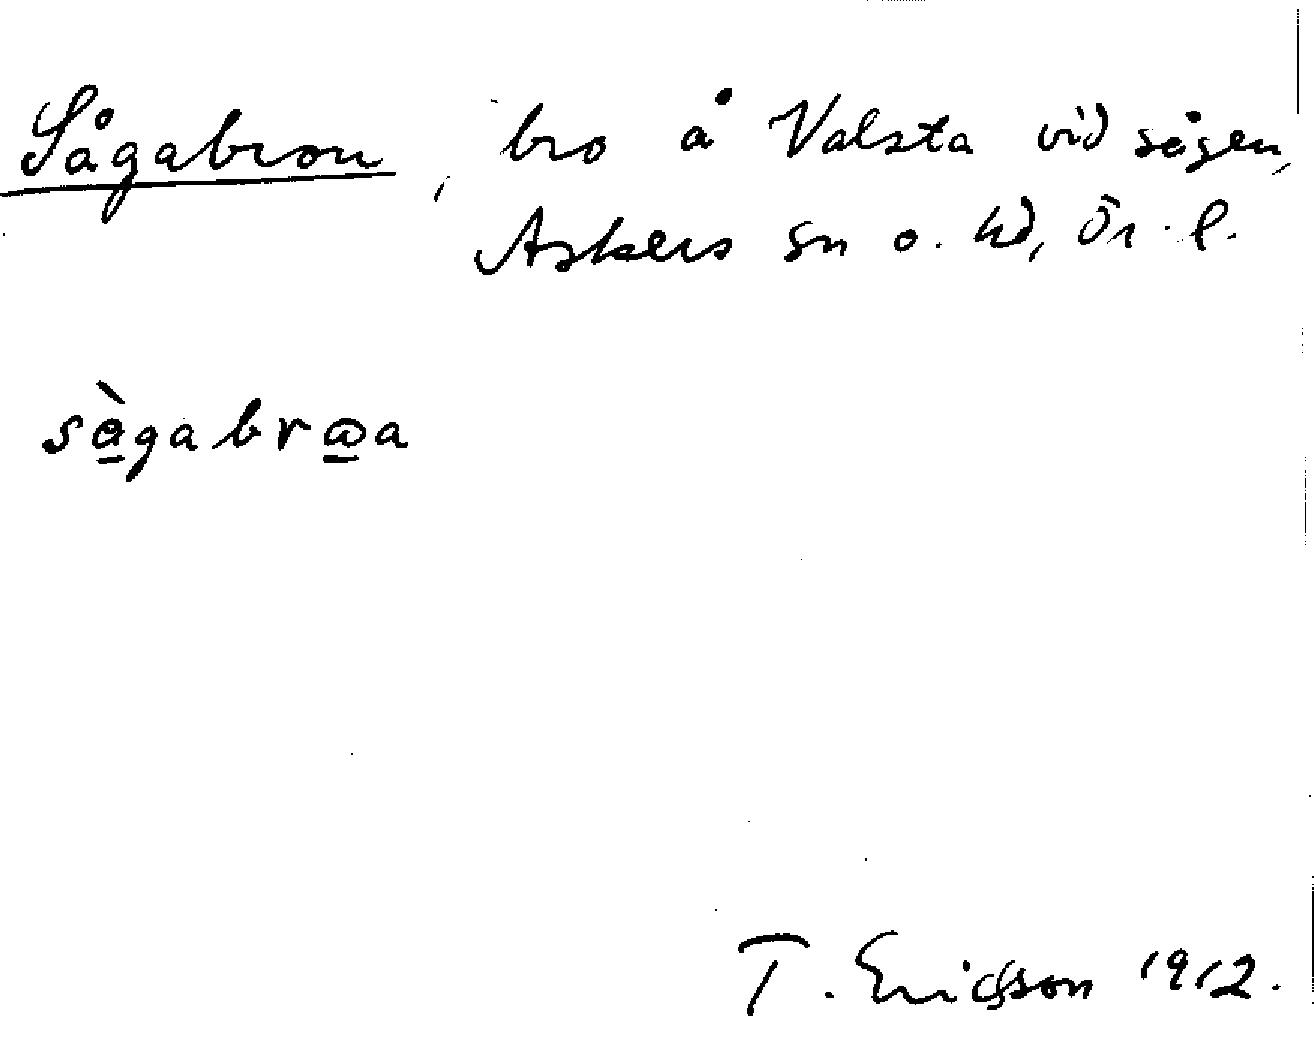 Sågabron, bro å Valsta vid sågen,
Askers sn o. hd, Ör. l.
sågabroa
T. Ericsson 1912.